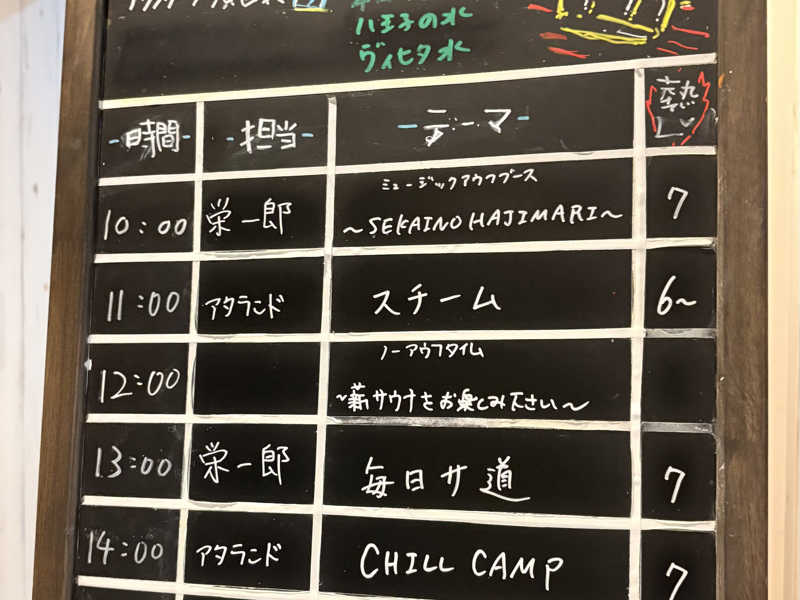 八王子の水
ヴィヒタ水
-時間- -担当- -テーマ- 熱レベ
10:00 栄一郎 ミュージックアウフグース 7
～SEKAINO HAJIMARI～
11:00 アタランド スチーム 6~
12:00 ノーアウフタイム
~薪サウナをお楽しみ下さい～
13:00 栄一郎 毎日サ道 7
14:00 アタランド CHILL CAMP 7